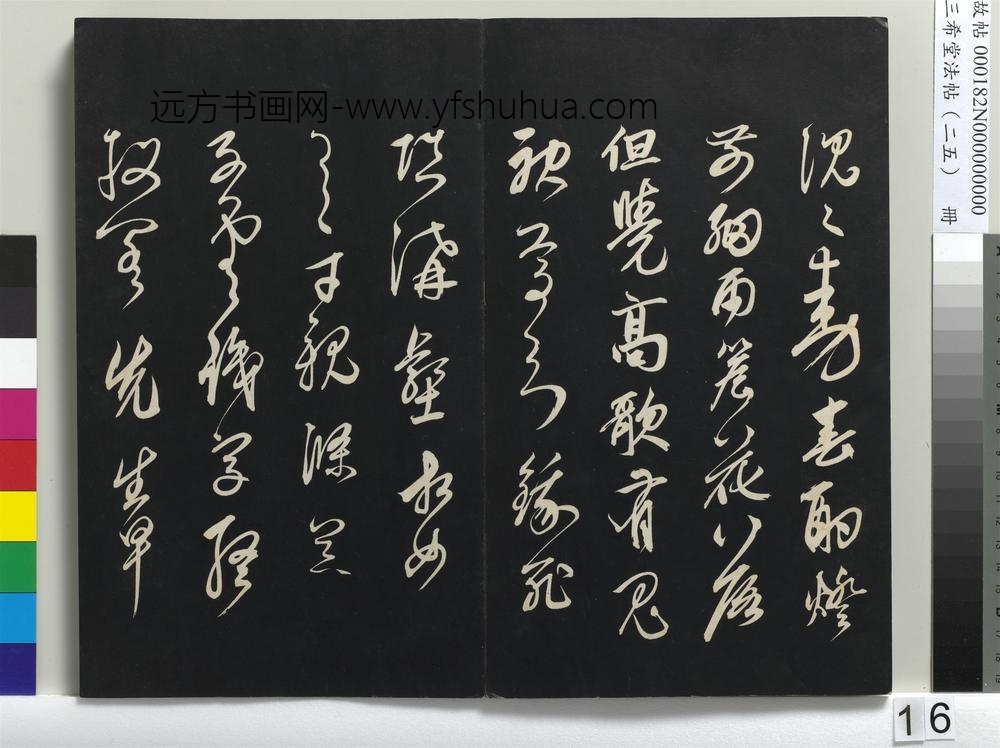 远方书画网-www.yfshuhua.com
沉〻動春酌燈
前細雨簷花落
但覺高歌有鬼
神焉知餓死
填溝壑相如
逸才親滌器
子雲識字終
投閣先生早
故帖 000182N000000000
三希堂法帖(二五) 冊
16